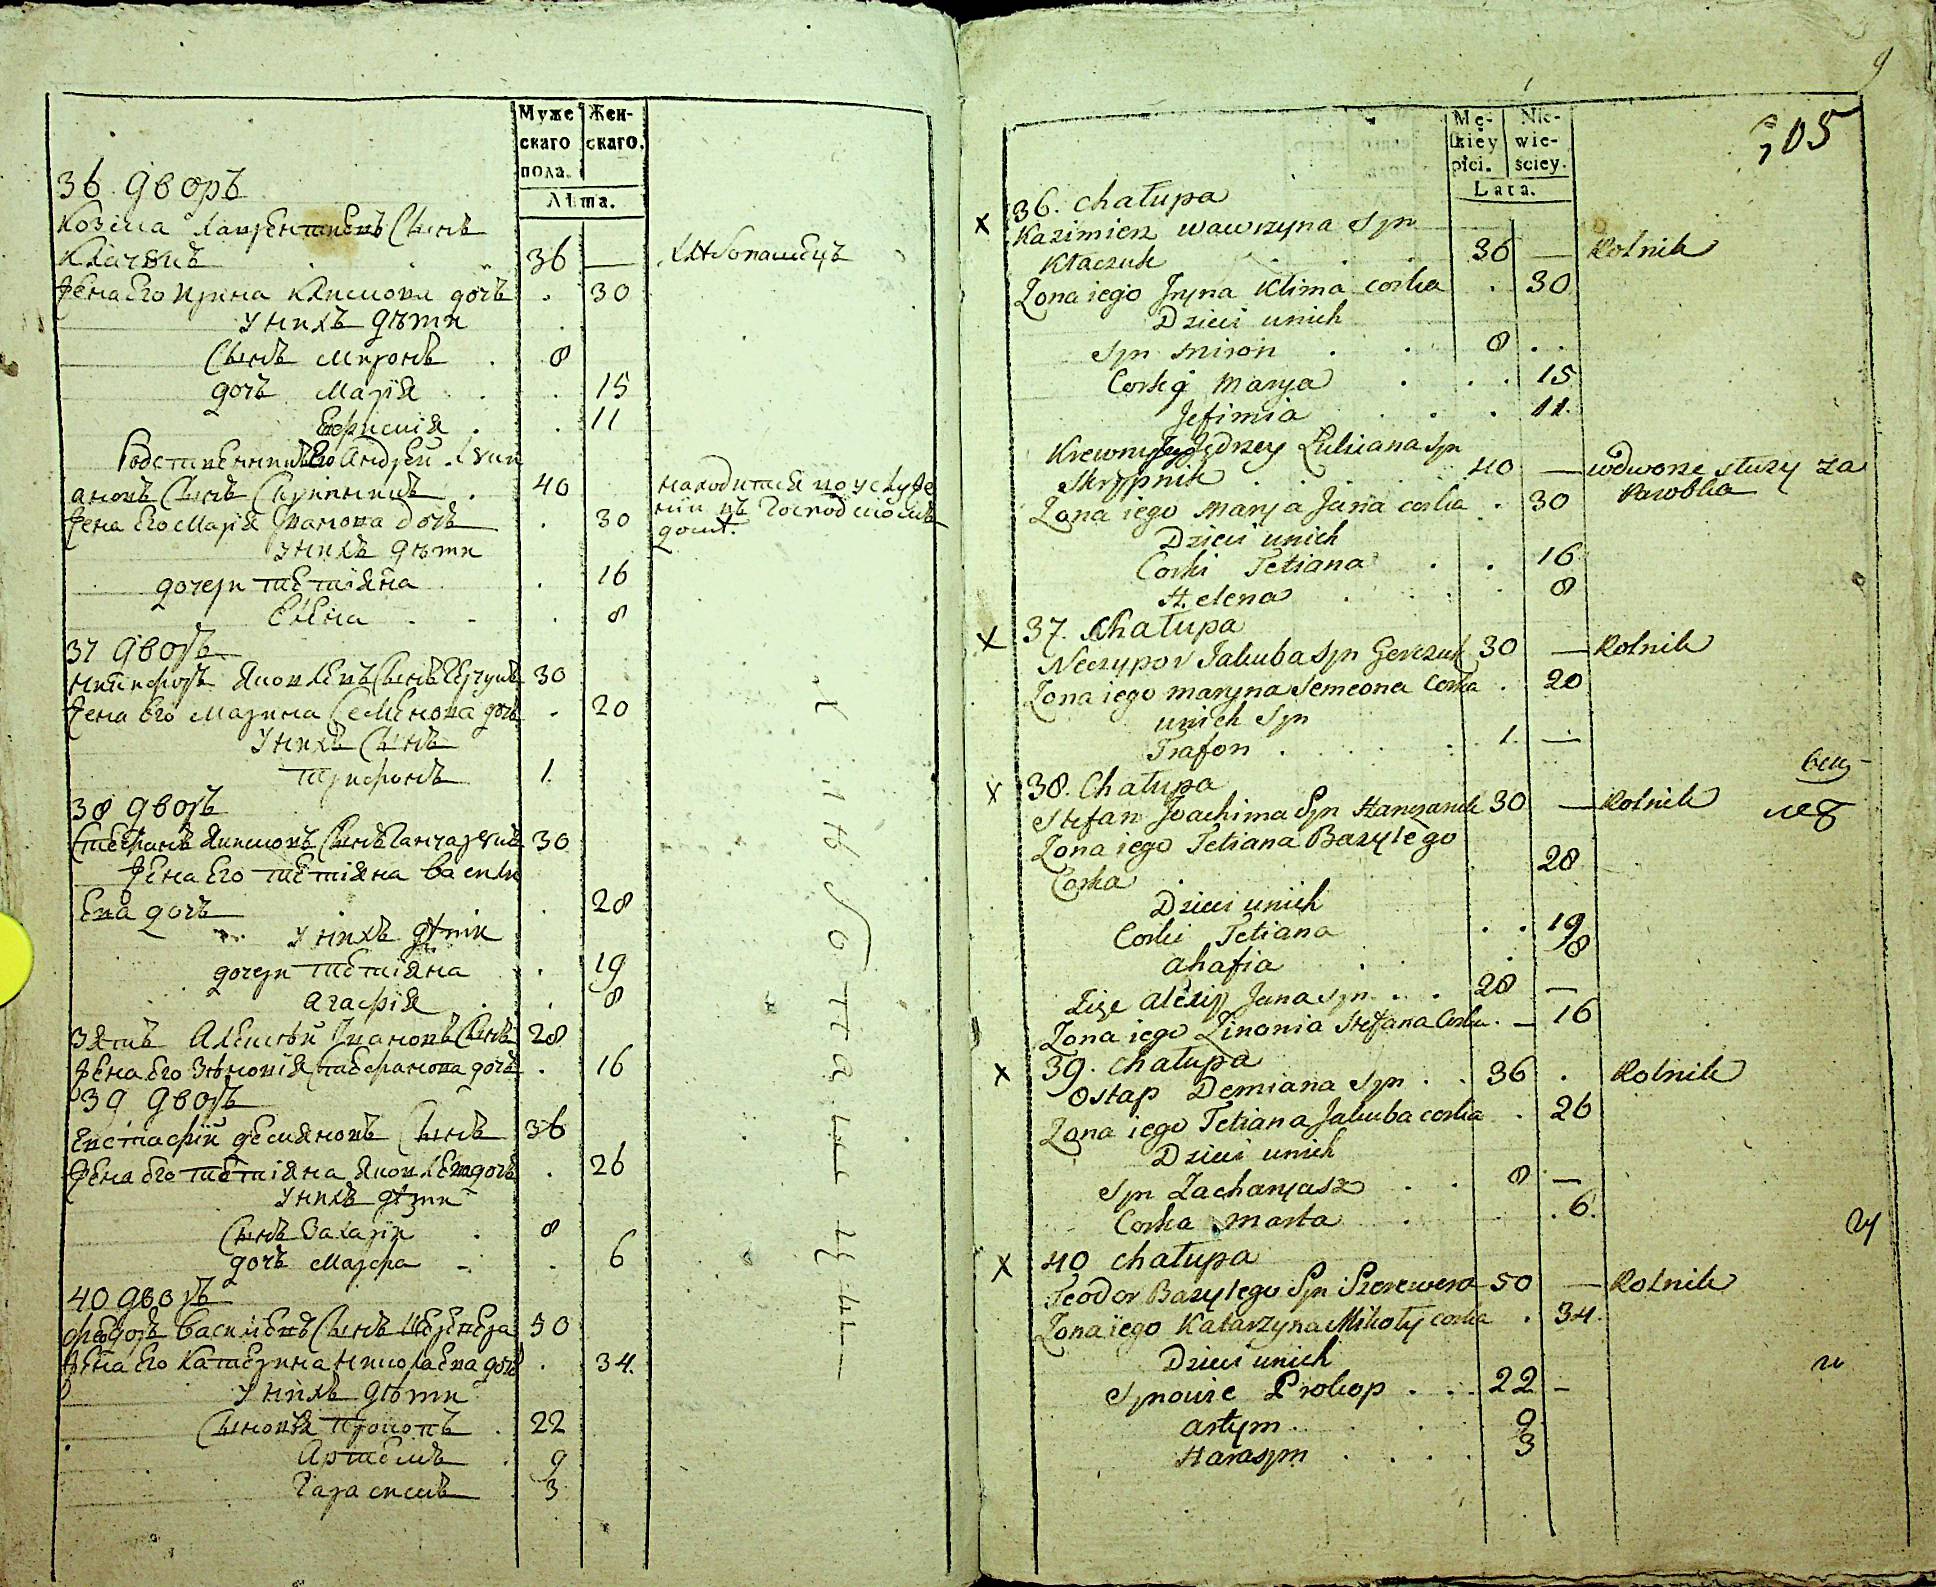 Муже
скаго
пола.
Жен-
скаго.
Лѣта.
36 дворъ
Козма Лаврентиевъ Сынъ
Клачукъ 36 — хлѣбопашецъ
Жена Его Ирина Климова дочь . 30
У нихъ дѣти
Сынъ Миронъ . 8
дочь Марія . 15
Ефимія . 11
Родственникъ Его Андрей
Сынъ Скрипникъ . 40 находится
Жена Его Марія Иванова дочь . 30
домѣ.
У нихъ дѣти
дочери Тетіяна . 16
Елена . 8
37 дворъ
Никифоръ Яковлевъ Сынъ Герчукъ 30
Жена Его Марина Семенова дочь . 20
У нихъ Сынъ
Трифонъ 1.
38 дворъ
Стефанъ Якимовъ Сынъ Ганчарукъ 30
Жена Его Тетіяна Васили
Ева дочь . 28
У нихъ дѣти
дочери Тетіяна . 19
Агафія . 8
Зять Алексѣй Ивановъ Сынъ 28
Жена Его Зѣновія Стефанова дочь . 16
39 дворъ
Евстафій Демяновъ Сынъ 36
Жена Его Тетіяна Яковлева дочь . 26
У нихъ дѣти
Сынъ Захарій . 8
дочь Марфа . 6
40 дворъ
Феодоръ Василіевъ Сынъ Шеревера 50
Жена Его Катерина Николаева дочь . 34.
У нихъ дѣти
Сыновья Прокопъ . 22
Артемъ . 9
Гарасимъ . 3
хлѣбопашцы
9
105
Mę-
skiey
płci.
Nie-
wie-
sciey.
Lata.
x 36. chałupa
Kazimierz wawrzyna Syn
Kłaczuk 36 — Rolnik
Zona iego Jryna Klima corka . 30
Dzieci unich
Syn miron . . 8 . .
Corki Marya . . . 15
Jefimia . . 11.
Krewny Jędrzey Syn
Skrypnik . 40 — wdworze służy za
Parobka
Zona iego Marya Jana corka . 30
Dzieci unich
Corki Tetiana . . 16
Helena . . . 8
x 37. Chałupa
Neczypor Jakuba Syn Gerczuk 30 — Rolnik
Zona iego maryna Semeona Corka . 20
unich Syn
Trafon . . 1. —
x 38. Chałupa
Stefan Joachima Syn Hanczaruk 30 — Rolnik
Zona iego Tetiana Bazylego
Corka . 28
Dzieci unich
Corki Tetiana . . 19
ahafia . . 8
Zięc alexiy Jana syn . . 28 —
Zona iego Zinonia Stefana Corka . — 16
x 39. chałupa
Ostap Demiana Syn . . 36 . Rolnik
Zona iego Tetiana Jakuba corka . 26
Dzieci unich
Syn Zacharyasz . . 8 —
Corka marta . . 6.
x 40 chałupa
Teodor Bazylego Syn Szerewera 50 — Rolnik
Zona iego Katarzyna Mikołÿ corka . 34.
Dzieci unich
Synowie Prokop . . . 22 —
artym . 9
Harasym . . . . 3